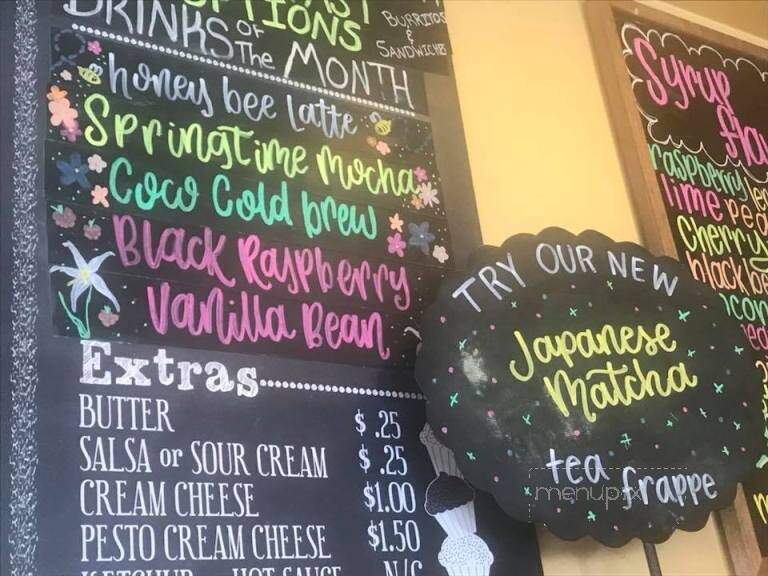 OPTIONS
BURRITOS
&
SANDWICHES
DRINKS OF The MONTH
honey bee Latte
Springtime Mocha
Coco Cold brew
Black Raspberry
Vanilla Bean
Extras
BUTTER $ .25
SALSA or SOUR CREAM $ .25
CREAM CHEESE $1.00
PESTO CREAM CHEESE $1.50
KETCHUP HOT SAUCE N/C
TRY OUR NEW
Japanese
Matcha
tea frappe
menupix
Syrup
raspberry
lime
cherry